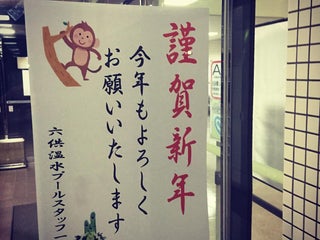 謹賀新年
今年もよろしく
お願いいたします
六供温水プールスタッフ一
A